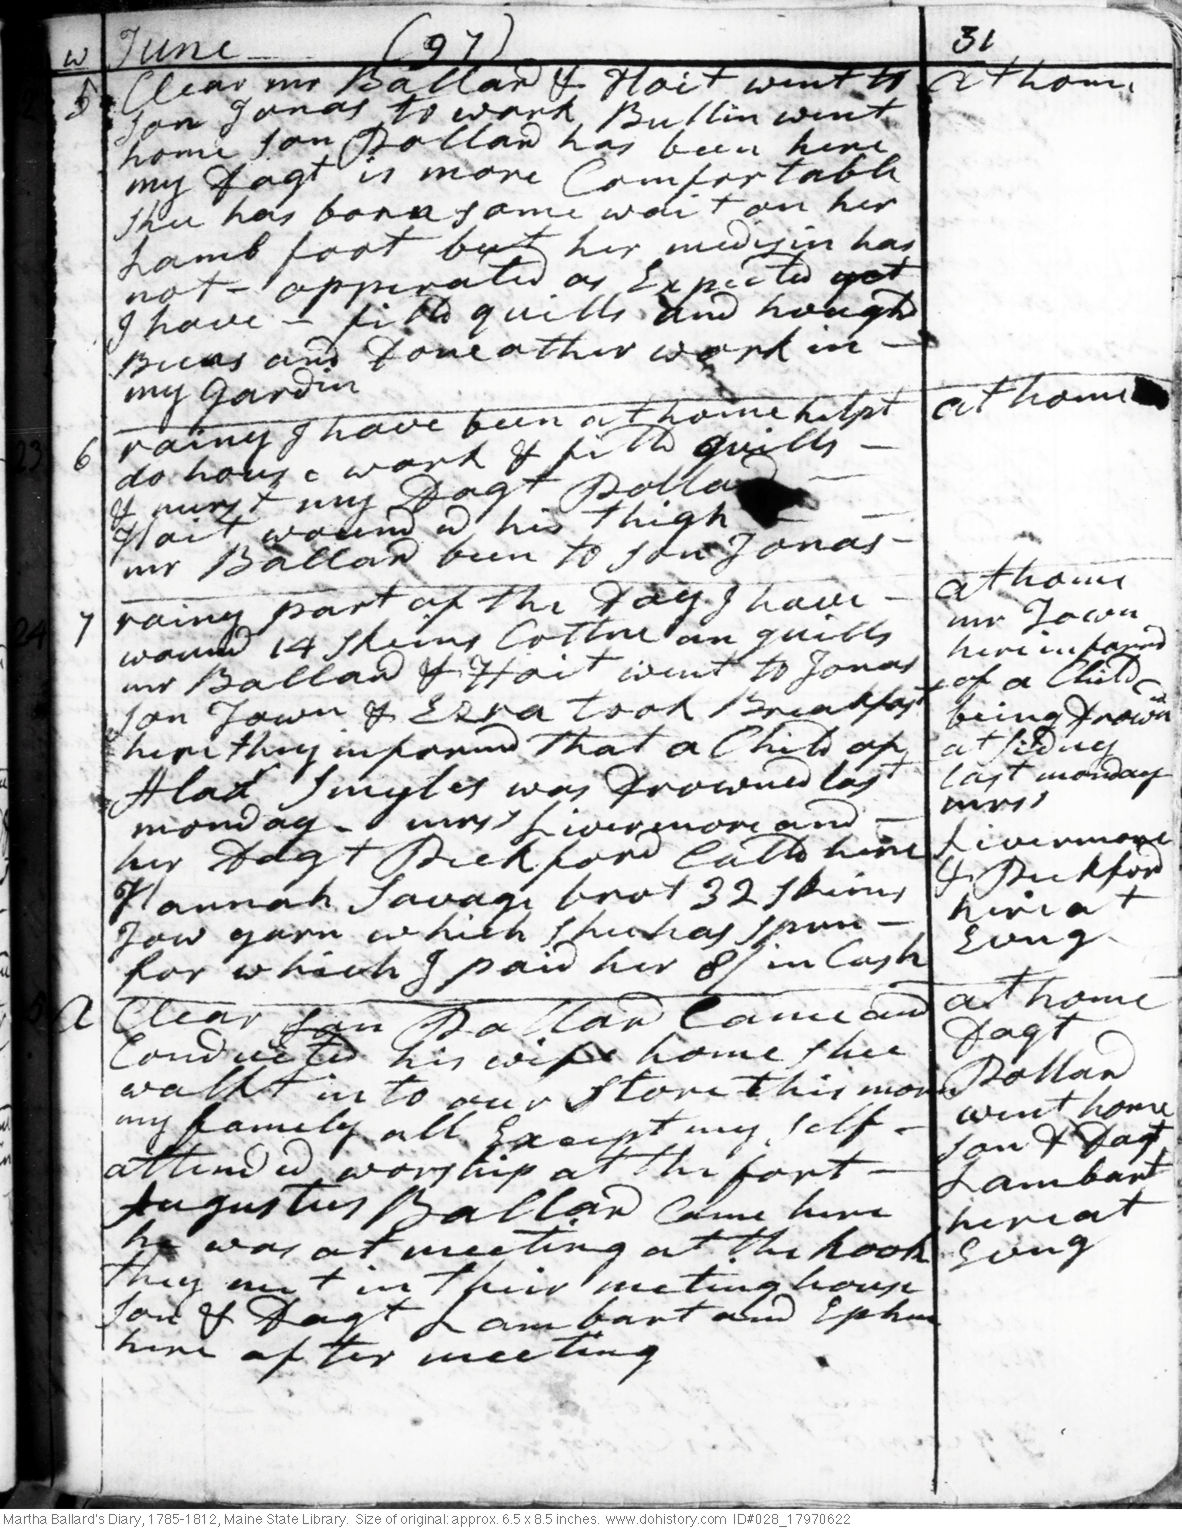 w June (97) 31
2 5 Clear mr Ballard & Hoit went to
son Jonas to work Bullin went
home son Pollard has been here
my Dagt is more Comfortable
shee has born some wait on her
Lamb foot but her medisin has
not - opperated as Expected yet
I have - fill'd quills and hough'd
Beens and Done other work in -
my gardin
at home
23 6 rainy I have been at home helpt
do house work & filld quills -
& nurst my Dagt Pollard -
Hoit wound d his thigh -
mr Ballard been to son Jonas -
at home
24 7 rainy part of the Day I have -
wound 14 skeins Cottne on quills
mr Ballard & Hoit went to Jonas
son Town & Ezra took Breakfast
here they informd that a Child of
Alax Smyles was Drowned last
monday - mrss Livermore and -
her Dagt Peckford Calld here
Hannah Savage brot 32 skeins
Tow yarn which shee has spun -
for which I paid her 8/ in Cash
at home
mr Town
here informd
of a Child
being Drown
at Sidney
last monday
mrss
Livermore
& Peckford
here at
Evng
5 A Clear son Pollard Came and
Conducted his wife home shee
walkt in to our Store this morn
my famely all Except my self -
attended worship at the fort -
Augustus Ballard Came here
he was at meeting at the hook
they met in their meting house
son & Dagt Lambart and Ephm
here after meeting
at home
Dagt
Pollard
went home
son & Dagt
Lambart
here at
Evng
Martha Ballard's Diary, 1785-1812, Maine State Library. Size of original: approx. 6.5 x 8.5 inches. www.dohistory.com ID#028_17970622